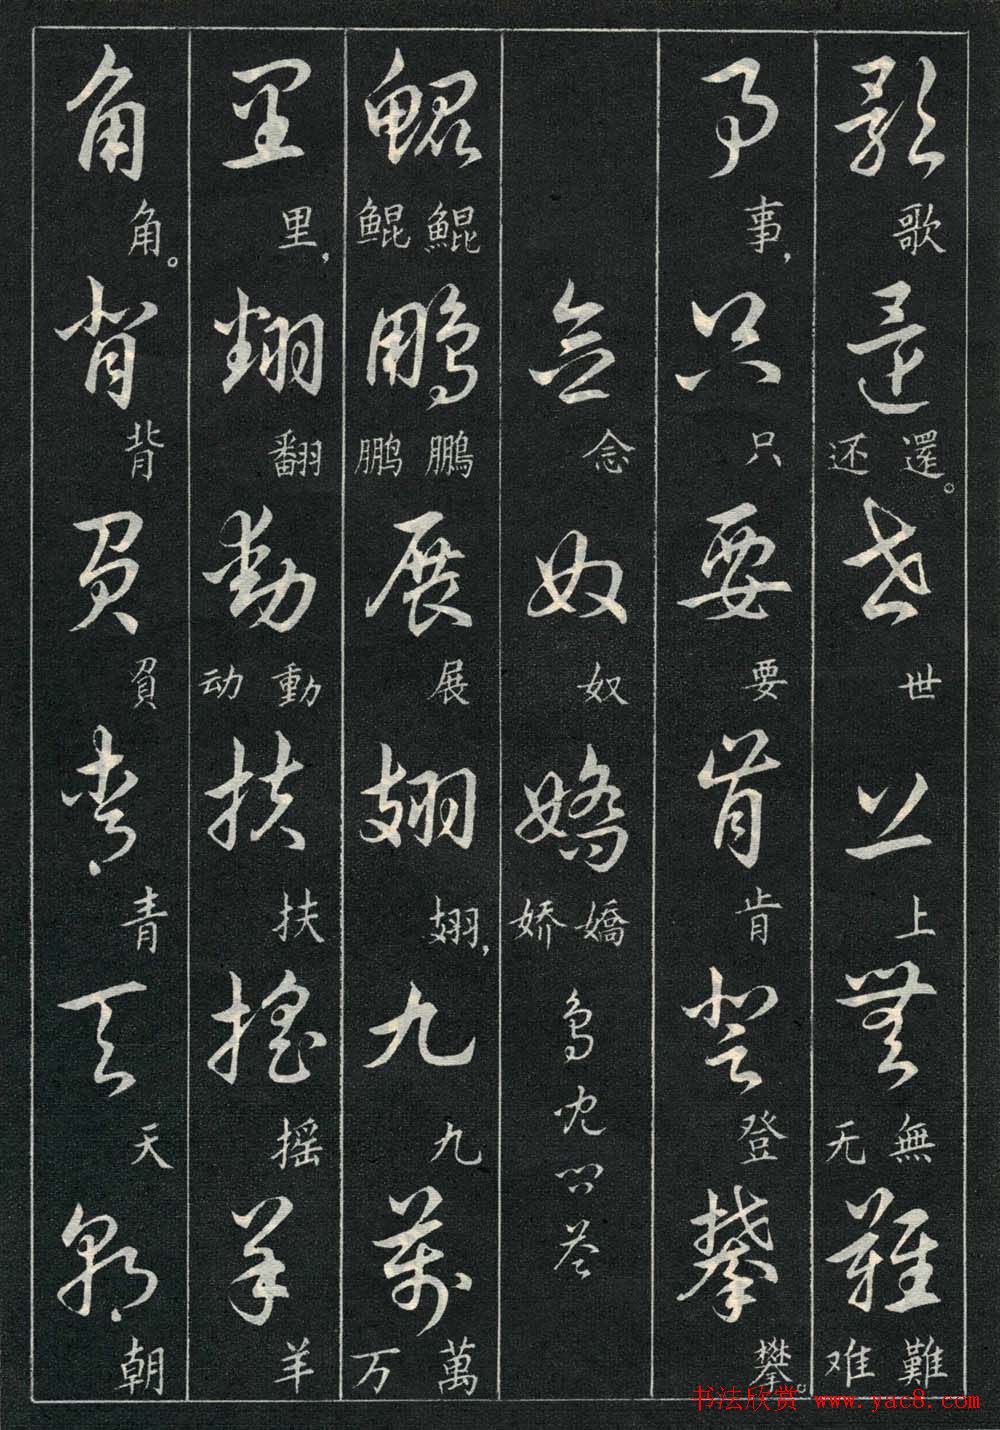 歌還世上無難
歌 還。还 世 上 無 无 難 难
事只要肯登攀
事, 只 要 肯 登 攀。
念奴嬌 鳥兒問答
念 奴 嬌 娇
鯤鵬展翅九萬
鯤 鲲 鵬 鹏 展 翅, 九 萬 万
里翻動扶搖羊
里, 翻 動 动 扶 摇 羊
角背負青天朝
角。背 負 青 天 朝
书法欣赏 www.yac8.com